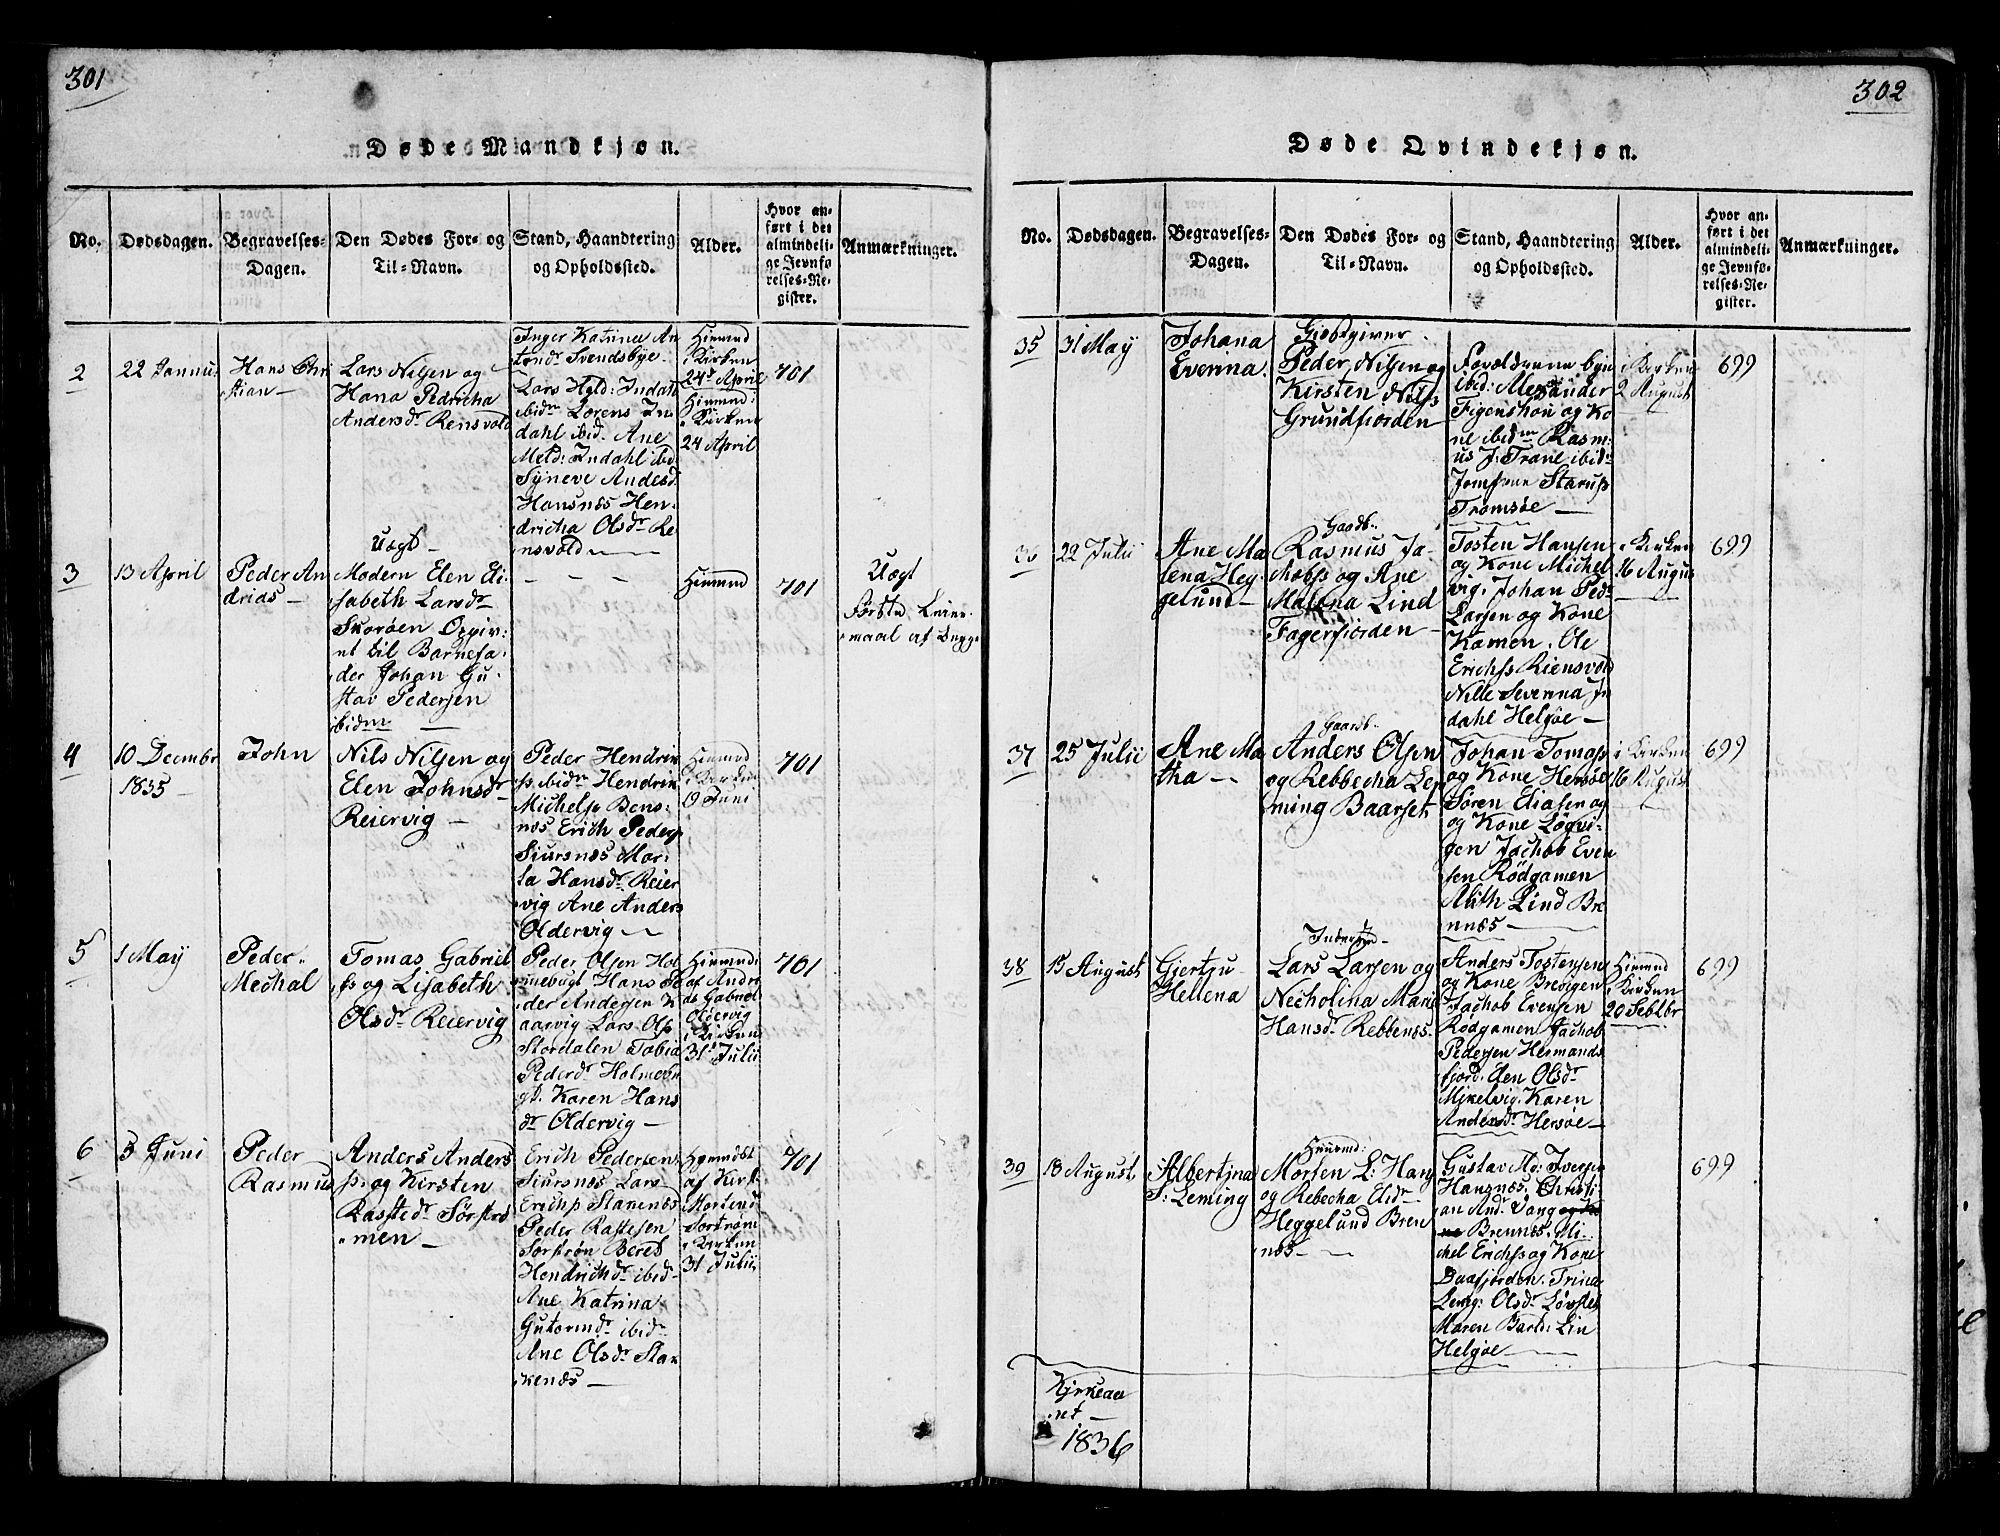 301
Døde Mandkjøn.
No.
Dødsdagen.
Begravelses-
Dagen.
Den Dødes For- og
Til-Navn.
Stand, Haandtering
og Opholdssted.
Alder.
Hvor an-
ført i det
almindeli-
ge Jevnfø-
relses-Re-
gister.
Anmærkninger.
2
22 Jannu
Hans Chr
stian
Lars Nilsen og
Hana Pedricha
Andersdr Rensvold
Inger Katrine An
tondr Svendsbye
Lars Meld: Indahl
ibidm Lorens In
dahl ibid. Ane
Meld: Indahl ibid
Syneve Andesd
Hansnæs Hen
dricha Olsdr Re
nsvold
Hiemmd
i Kirken
24d April
Hiemmd:
i Kirken
24 April
701
3
13 April
Peder An
drias
Uægt
Modern Elen Eli
sabeth Larsdr
Skorøen Opgiv
nt til Barnefa
der Johan Gu
stav Pedersen
ibidm
Hiemmd
701
Uægt
Første Leier
maal af begge
4
10 Decembr
1835
John
Nils Nilsen og
Elen Johnsdr
Reiervig
Peder Hendrik
s. ibidm Hendrik
Michels Bens
næs Erich Peders
Siursnæs Mar
ta Hansdr Reier
vig Ane Anders
Oldervig
Hiemmd
i Kirken
9 Juni
701
5
1 May
Peder
Mechal
Tomas Gabriel
s og Lisabeth
Olsdr Reiervig
Peder Olsen Hol
mebugt Hans Pe
der Andersen K
aarvig Lars Ols
Stordalen Tobia
Pedersdr Holmebu
gt. Karen Hans
dr Oldervig
Hiemmd:
af Andr
as Gabriel
Oldervig
i Kirken
31 Julii
701
6
3 Juni
Peder
Rasmus
Anders Anders
s. og Kirsten
Rastedr Sørstrø
men
Erich Pedersen
Siursnæs Lars
Erichs Starenæs
Peder Rastesen
Sørstrøn Beret
Hendrichdr ibid
Ane Katrina
Gutormdr ibidm
Ane Olsdr Star
kenæs
Hiemmdøbt
af Kirst
Mortensd
Sørstrøm
i Kirken
31 Julii
701
302
Døde Qvindekjøn.
No.
Dødsdagen.
Begravelses-
Dagen.
Den Dødes For- og
Til-Navn.
Stand, Haandtering
og Opholdssted.
Alder.
Hvor an-
ført i det
almindeli-
ge Jevnfø-
relses-Re-
gister.
Anmærkninger.
35
31 May
Johana
Everina
Giestgiver
Peder Nilsen og
Kirsten Nils
Grundfiorden
Forældrene bye
ibid: Alexander
Figenshou og Ko
ne ibidm Rasm
us J: Trane ibidm
Jomfrue Starup
Tromsøe
i Kirken
2 August
699
36
22 Julii
Ane Ma
lena Heg
gelund
Gaardb
Rasmus Ja
kobs og Ane
Malena Lind
Fagerfiorden
Tosten Hansen
og Kone Michel
vig. Johan Ped
Larsen og Kone
Kamen. Ole
Erichs Riensvold
Nille Severina In
dahl Helgøe
i Kirken
16 August
699
37
25 Julii
Ane Ma
tha
Gaardb
Anders Olsen
og Rebbecha Lem
ming Baarset
Johan Tomas
og Kone Hersøe
Søren Eliasen og
og Kone Løgvi
gen Jachob Even
sen Rødgamen
Alith Lind Bre
nnæs
i Kirken
16 August
699
38
15 August
Gjertru
Hellena
Indersted
Lars Larsen og
Necholina Marie
Hansdr Rebbenæs
Anders Tostensen
og Kone Brevigen
Jachob Evensen
Rødgamen Jachob
Pedersen Hermands
fjord. Elen Olsdr
Mikelvig. Karen
Andersdr Hersøe
Hiemmd
i Kirken
20 Sebtbr
699
39
18 August
Albertina
S: Leming
Huusmd:
Morten L: Hans
og Rebecha Elidr
Heggelund Bren
næs
Gustav Md: Iversen
Hansnæs. Christi
an And: Vang
Brennæs. Mi
chel Erichs og Kone
Baafjorden. Trina
Lemg: Olsdr Løvstet
Maren Bartd: Lin
Helgøe
699
Kirkeaa
ret
1836